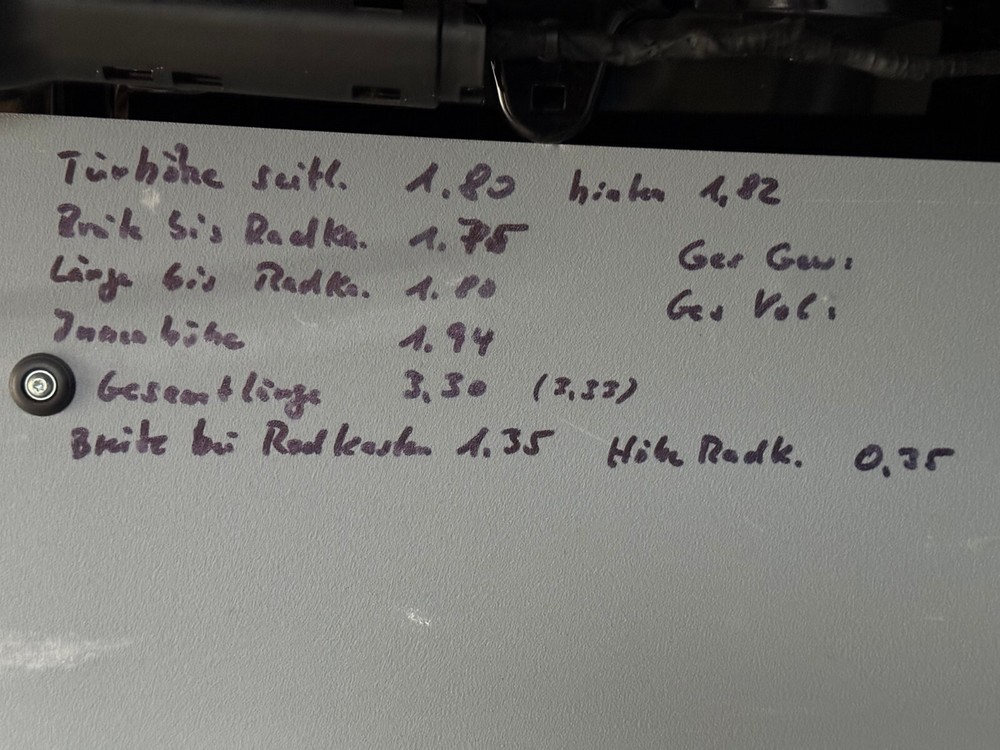 Türhöhe seitl. 1.80 hinten 1,82
Breite bis Radka. 1.75
Länge bis Radka. 1.80
Innenhöhe 1.94
Gesamtlänge 3.30 (3,33)
Breite bei Radkasten 1.35 Höhe Radk. 0,35
Ges Gew:
Ges Vol: